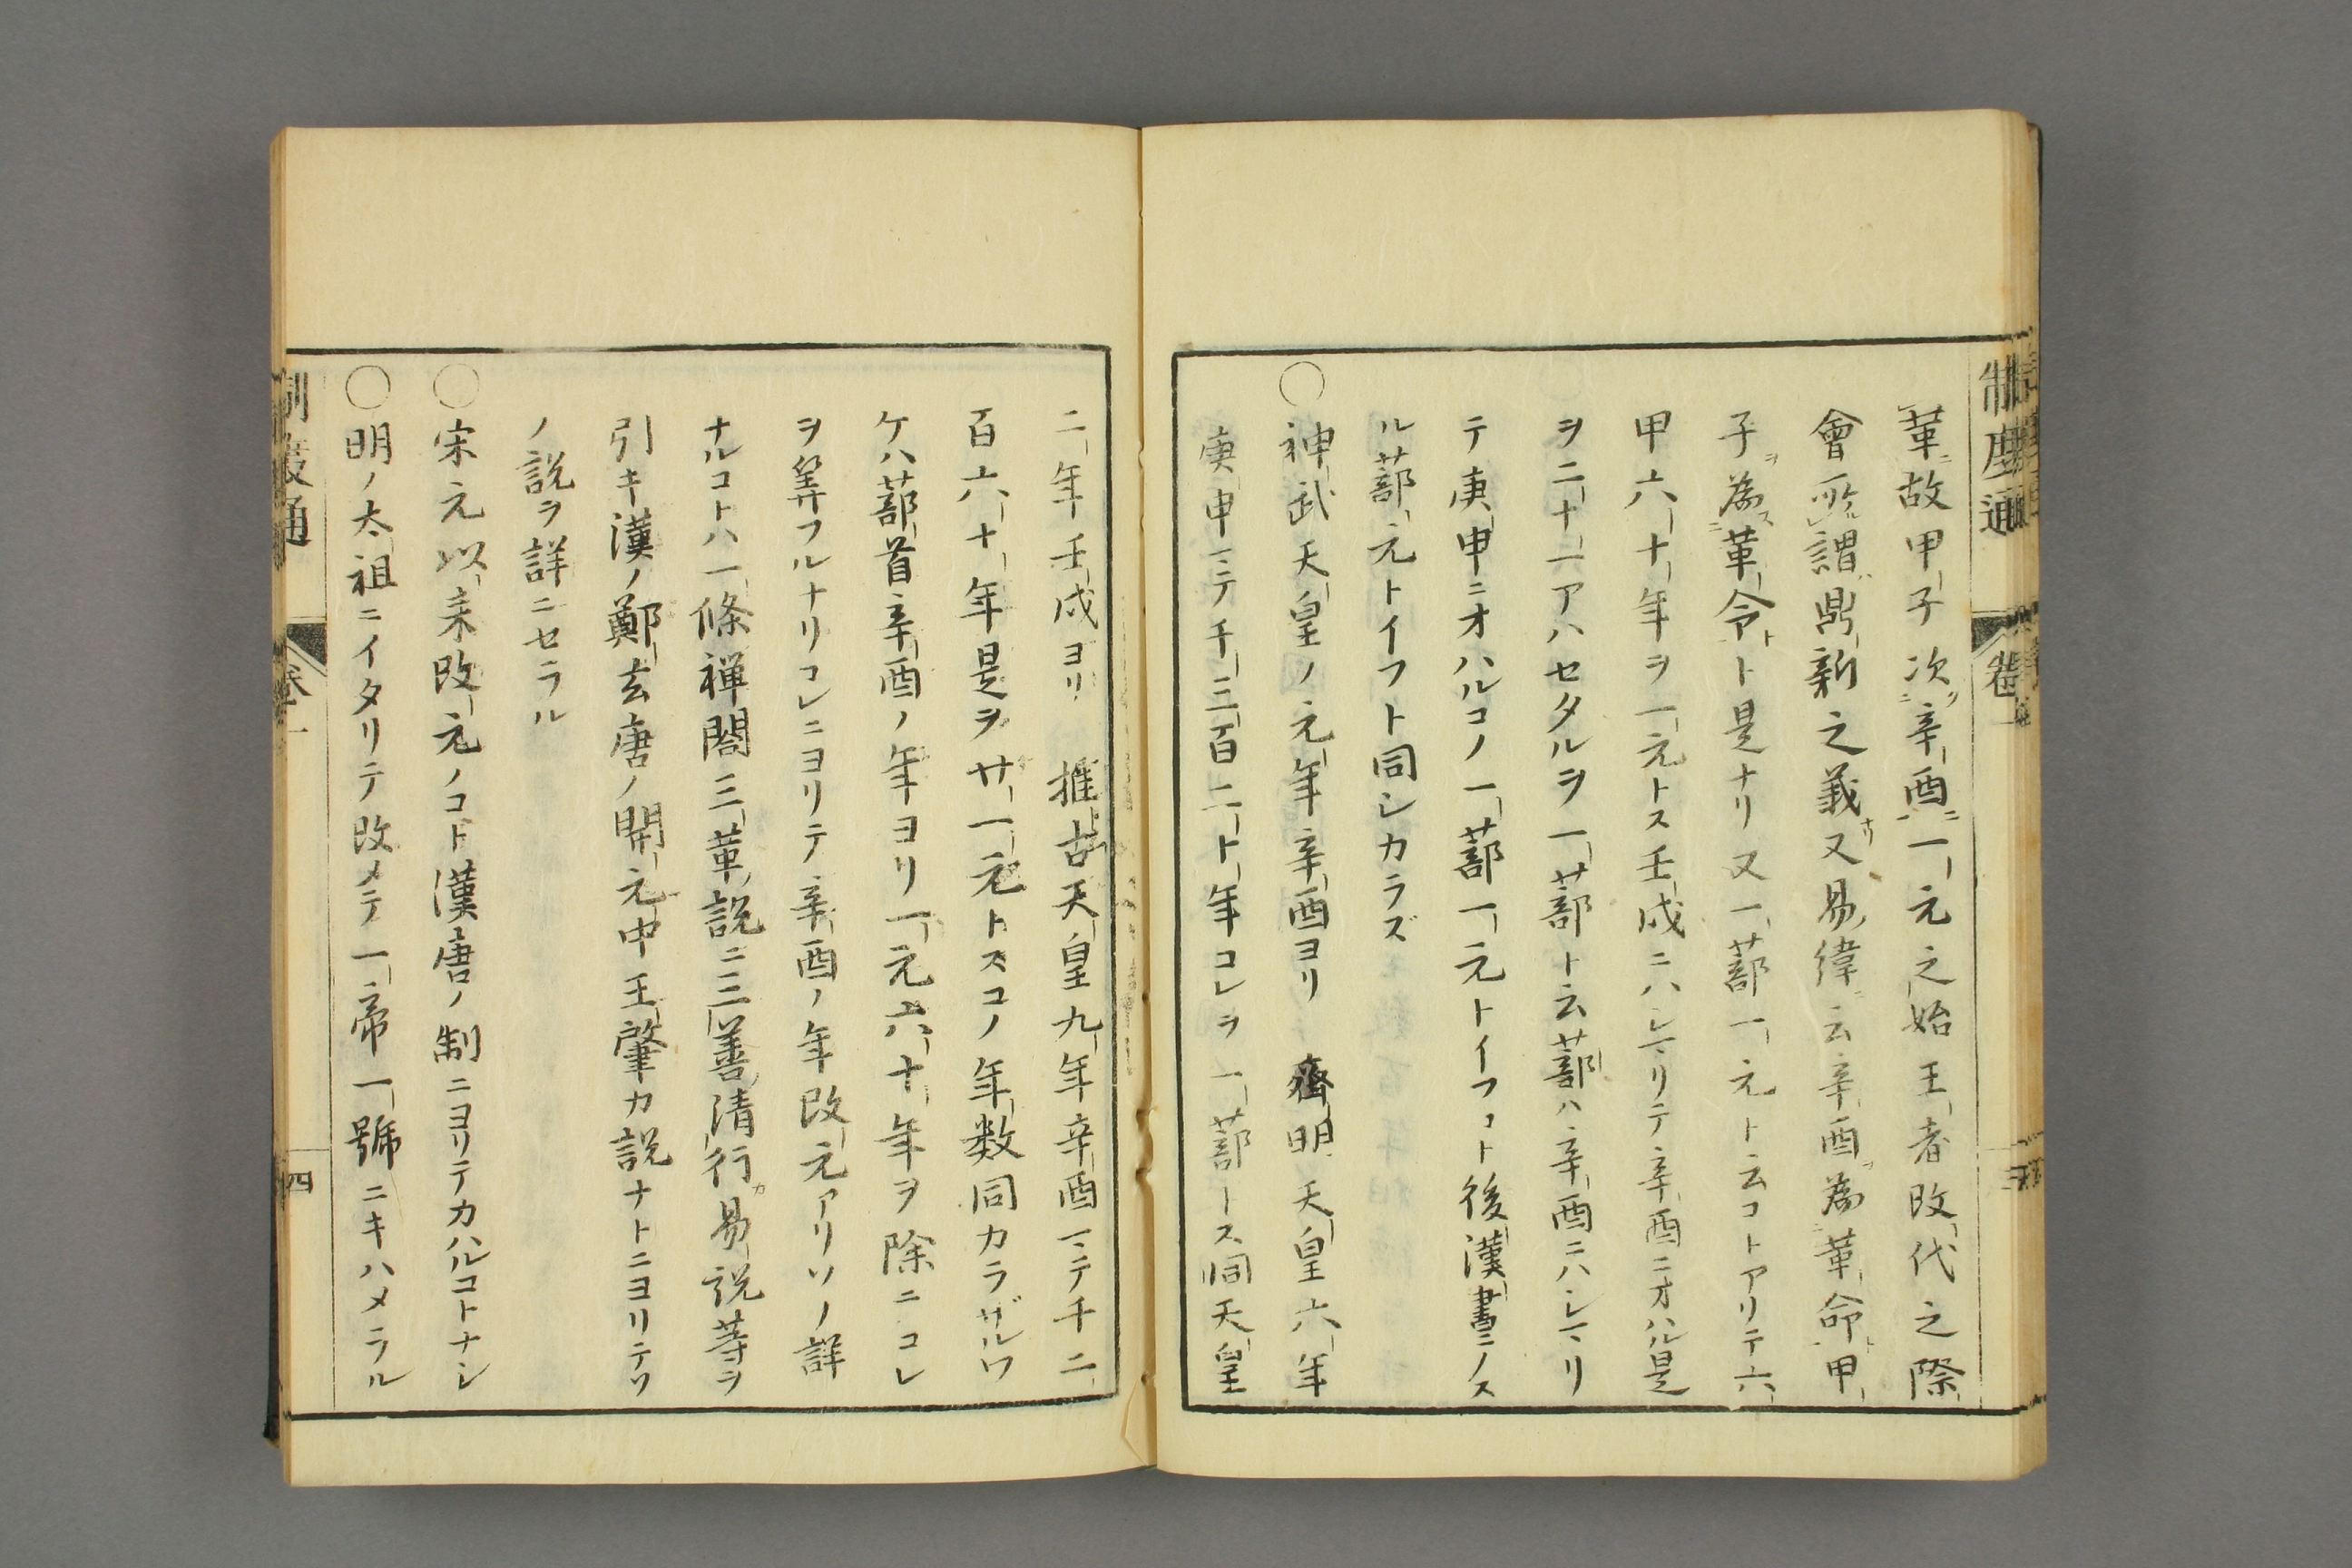 制度通
卷一
革故甲子次辛酉一元之始王者改代之際
會所謂鼎新之義又易緯云辛酉為革命甲
子為革令ト是ナリ又一蔀一元ト云コトアリテ六
甲六十年ヲ一元トス壬戌ニハシマリテ辛酉ニオハル是
ヲ二十一アハセタルヲ一蔀ト云蔀ハ辛酉ニハシマリ
テ庚申ニオハルコノ一蔀一元トイフコト後漢書ニノス
ル蔀元トイフト同シカラズ
〇神武天皇ノ元年辛酉ヨリ 齊明天皇六年
庚申マテ千三百二十年コレヲ一蔀トス同天皇
二年壬戌ヨリ 推古天皇九年辛酉マテ千二
百六十年是ヲ廿一元トスコノ年数同カラザルワ
ケハ蔀首辛酉ノ年ヨリ一元六十年ヲ除ニコレ
ヲ筭フルナリコレニヨリテ辛酉ノ年改元アリソノ詳
ナルコトハ一條禅閤三革説ニ三善清行カ易説等ヲ
引キ漢ノ鄭玄唐ノ開元中王肇カ説ナトニヨリテソ
ノ説ヲ詳ニセラル
〇宋元以来改元ノコト漢唐ノ制ニヨリテカハルコトナシ
〇明ノ太祖ニイタリテ改メテ一帝一號ニキハメラル
制度通
卷一
四